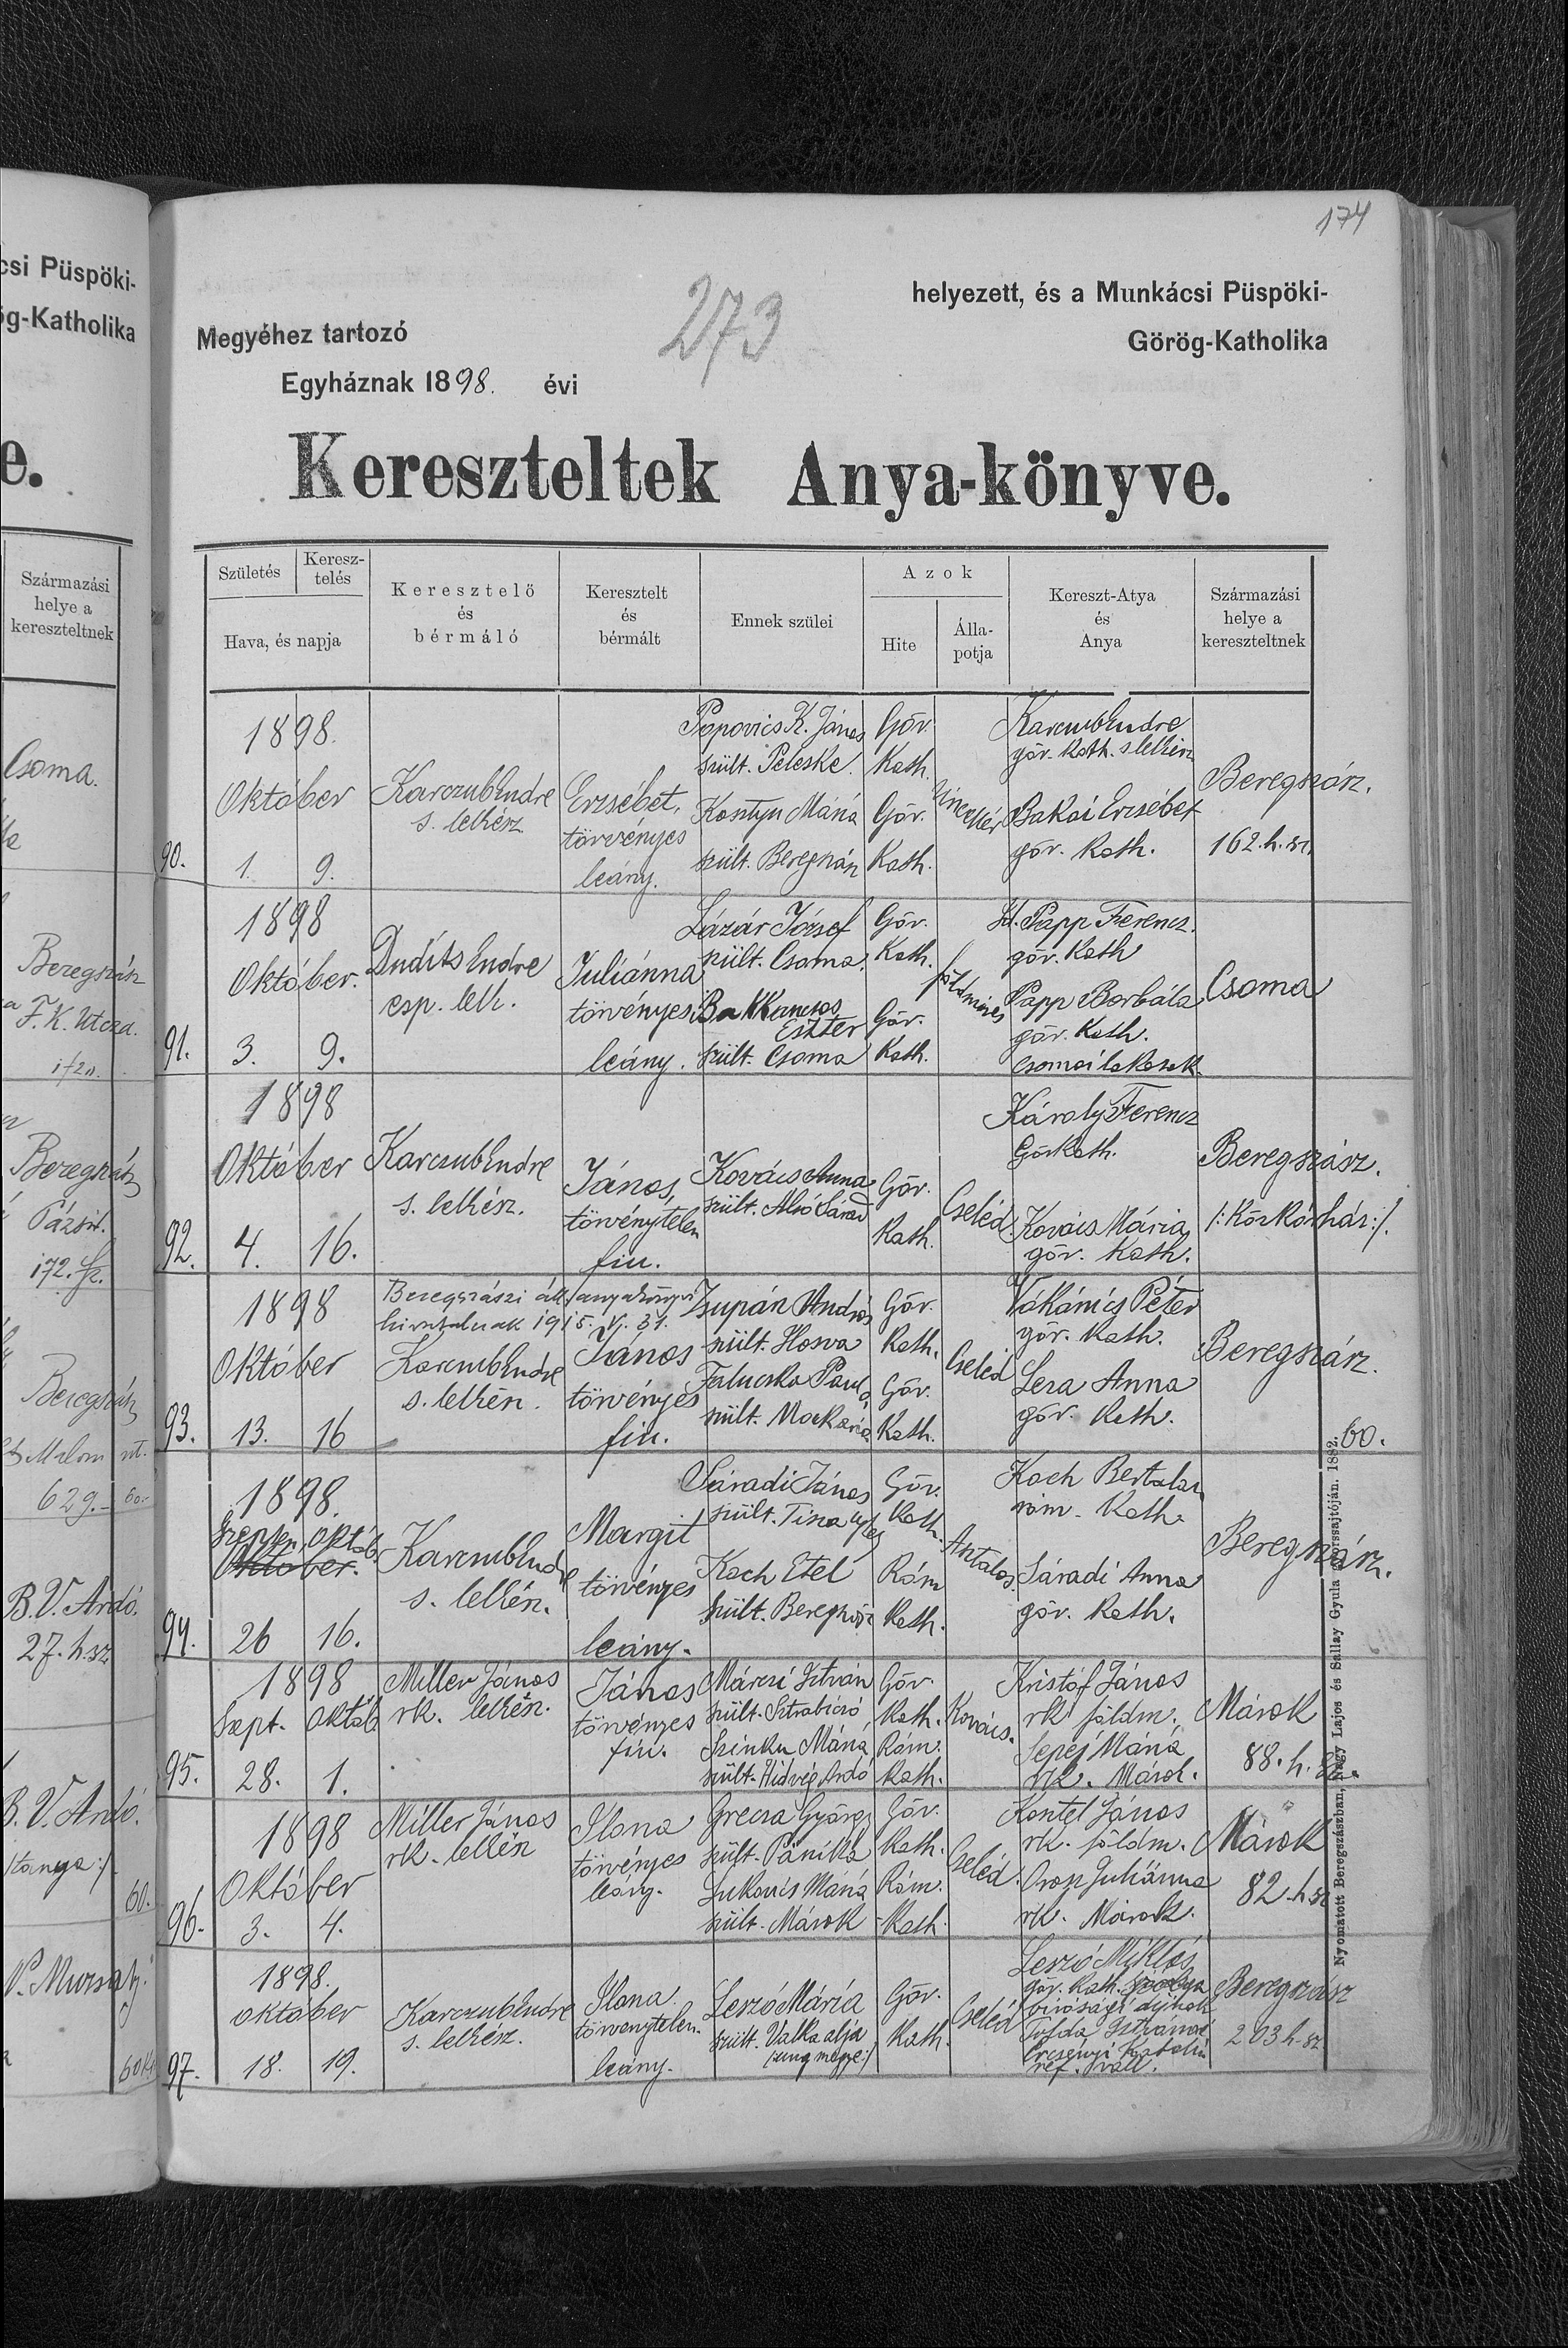 174
csi Püspöki-
g-Katholika
e.
Származási
helye a
kereszteltnek
Csoma.
Beregszász
F. K. Utcza.
Beregszász
Pázsit.
172.
Beregszász
Malom
629.
B. V. Ardó.
27. h. sz
B. V. Ardó.
/tanya:/
60.
V. Muzsaly.
273
helyezett, és a Munkácsi Püspöki-
Megyéhez tartozó
Görög-Katholika
Egyháznak 1898. évi
Kereszteltek Anya-könyve.
Születés
Keresz-
telés
Hava, és napja
Keresztelő
és
bérmáló
Keresztelt
és
bérmált
Ennek szülei
Azok
Hite
Álla-
potja
Kereszt-Atya
és
Anya
Származási
helye a
kereszteltnek
90.
1898.
Október
1. 9.
Karczub Endre
s. lelkész
Erzsébet,
törvényes
leány.
Popovics K. János
szült. Peleske.
Kostyu Mária
szült. Beregszász
Gör.
Kath.
Gör.
Kath.
Vinczellér
Karczub Endre
gör. kath. s. lelkész
Bakai Erzsébet
gör. kath.
Beregszász.
162. h. sz.
91.
1898
Október.
3. 9.
Dudits Endre
esp. lelk.
Juliánna
törvényes
leány.
Lázár József
szült. Csoma.
Eszter
szült. Csoma
Gör.
Kath.
Gör.
Kath.
földmíves
Id. Papp Ferencz.
gör. Kath
Papp Borbála
gör. Kath.
csomai lakosok
Csoma
92.
1898
Október
4. 16.
Karczub Endre
s. lelkész.
János,
törvénytelen
fiu.
Kovács Anna
szült. Alsó Sárad
Gör.
Kath.
Cseléd
Károly Ferencz
Gör Kath.
Kovács Mária
gör. Kath.
Beregszász.
/:Közkórház:/.
93.
1898
Október
13. 16
Beregszászi áll. anyakönyvi
hivatalnak 1915. V. 31.
Karczub Endre
s. lelkész.
János
törvényes
fiu.
Zsupán András
szült. Hosva
Falucska Paula
szült. Mockaria
Gör.
Kath.
Gör.
Kath.
Cseléd
Vákánics Péter
gör. kath.
Lesa Anna
gör. kath.
Beregszász.
60.
94.
1898.
Szeptem. Októb.
Október.
26 16.
Karczub Endre
s. lelkész.
Margit
törvényes
leány.
Sáradi János
szült. Tisza
Koch Etel
szült. Beregszász
Gör.
Kath.
Róm
Kath.
Asztalos.
Koch Bertalan
róm. kath.
Sáradi Anna
gör. kath.
Beregszász.
95.
1898
Szept. Októb
28. 1.
Miller János
rk. lelkész.
János
törvényes
fiu.
Márczi István
szült. Sztrabicsó
Szinku Mária
szült. Hidvég Ardó
Gör.
Kath.
Róm.
Kath.
Kovács.
Kristóf János
rk földm.
Sepej Mária
rk. Márok.
Márok
88. h. sz.
96.
1898
Október
3. 4.
Miller János
rk. lelkész
Ilona
törvényes
leány.
Grecsa György
szült. Pánika
Lukovics Mária
szült. Márok
Gör.
Kath.
Róm.
Kath.
Cseléd.
Kontel János
rk. földm.
Orosz Juliánna
rk. Márok.
Márok
82. h. sz
97.
1898.
október
18. 19.
Karczub Endre
s. lelkész.
Ilona
törvénytelen
leány.
Leszó Mária
szült. Valkaalja
(:ung megye:)
Gör.
Kath.
Cseléd
Leszó Miklós
gör. kath.
birósági dijnok
Tolda Istvánné
Ercsényi Katalin
ref. vall.
Beregszász
203 h. sz
Nyomatott Beregszászban, Nagy Lajos és Sallay Gyula gyorssajtóján. 1882.